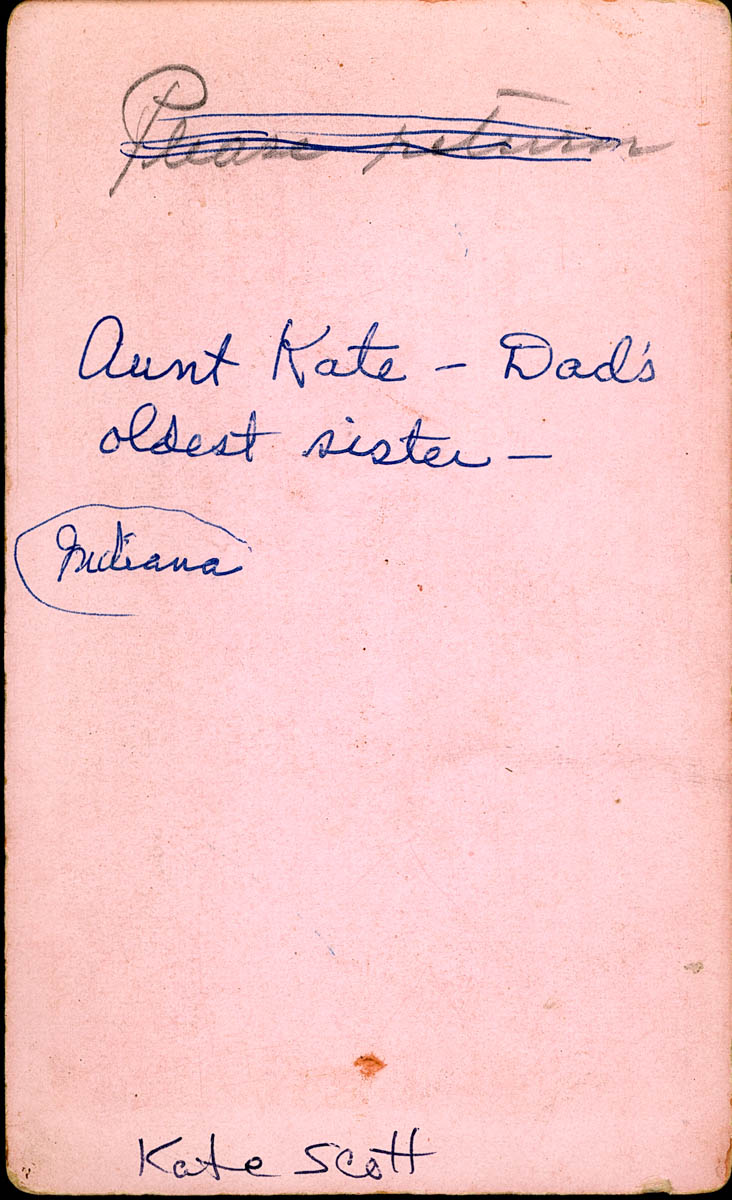 Please return
Aunt Kate – Dad's
oldest sister –
Indiana
Kate Scott